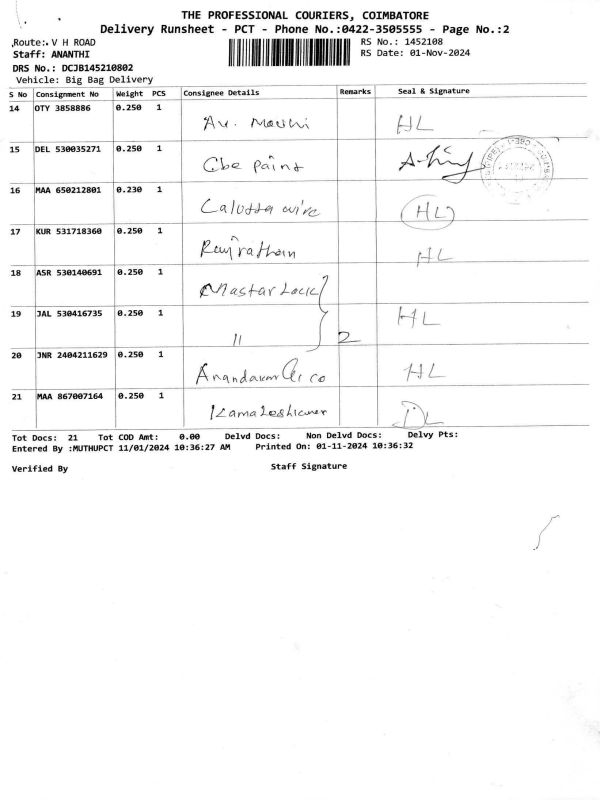 THE PROFESSIONAL COURIERS, COIMBATORE
Delivery Runsheet - PCT - Phone No.:0422-3505555 - Page No.:2
Route: V H ROAD
RS No.: 1452108
Staff: ANANTHI
RS Date: 01-Nov-2024
DRS No.: DCJB145210802
Vehicle: Big Bag Delivery
S No Consignment No Weight PCS Consignee Details Remarks Seal & Signature
14 OTY 3858886 0.250 1 HL
15 DEL 530035271 0.250 1 Cbe Paint
16 MAA 650212801 0.230 1 Calutta wire HL
17 KUR 531718360 0.250 1 HL
18 ASR 530140691 0.250 1 Mastar Lock
19 JAL 530416735 0.250 1 11 2 HL
20 JNR 2404211629 0.250 1 HL
21 MAA 867007164 0.250 1 DL
Tot Docs: 21 Tot COD Amt: 0.00 Delvd Docs: Non Delvd Docs: Delvy Pts:
Entered By :MUTHUPCT 11/01/2024 10:36:27 AM Printed On: 01-11-2024 10:36:32
Verified By Staff Signature